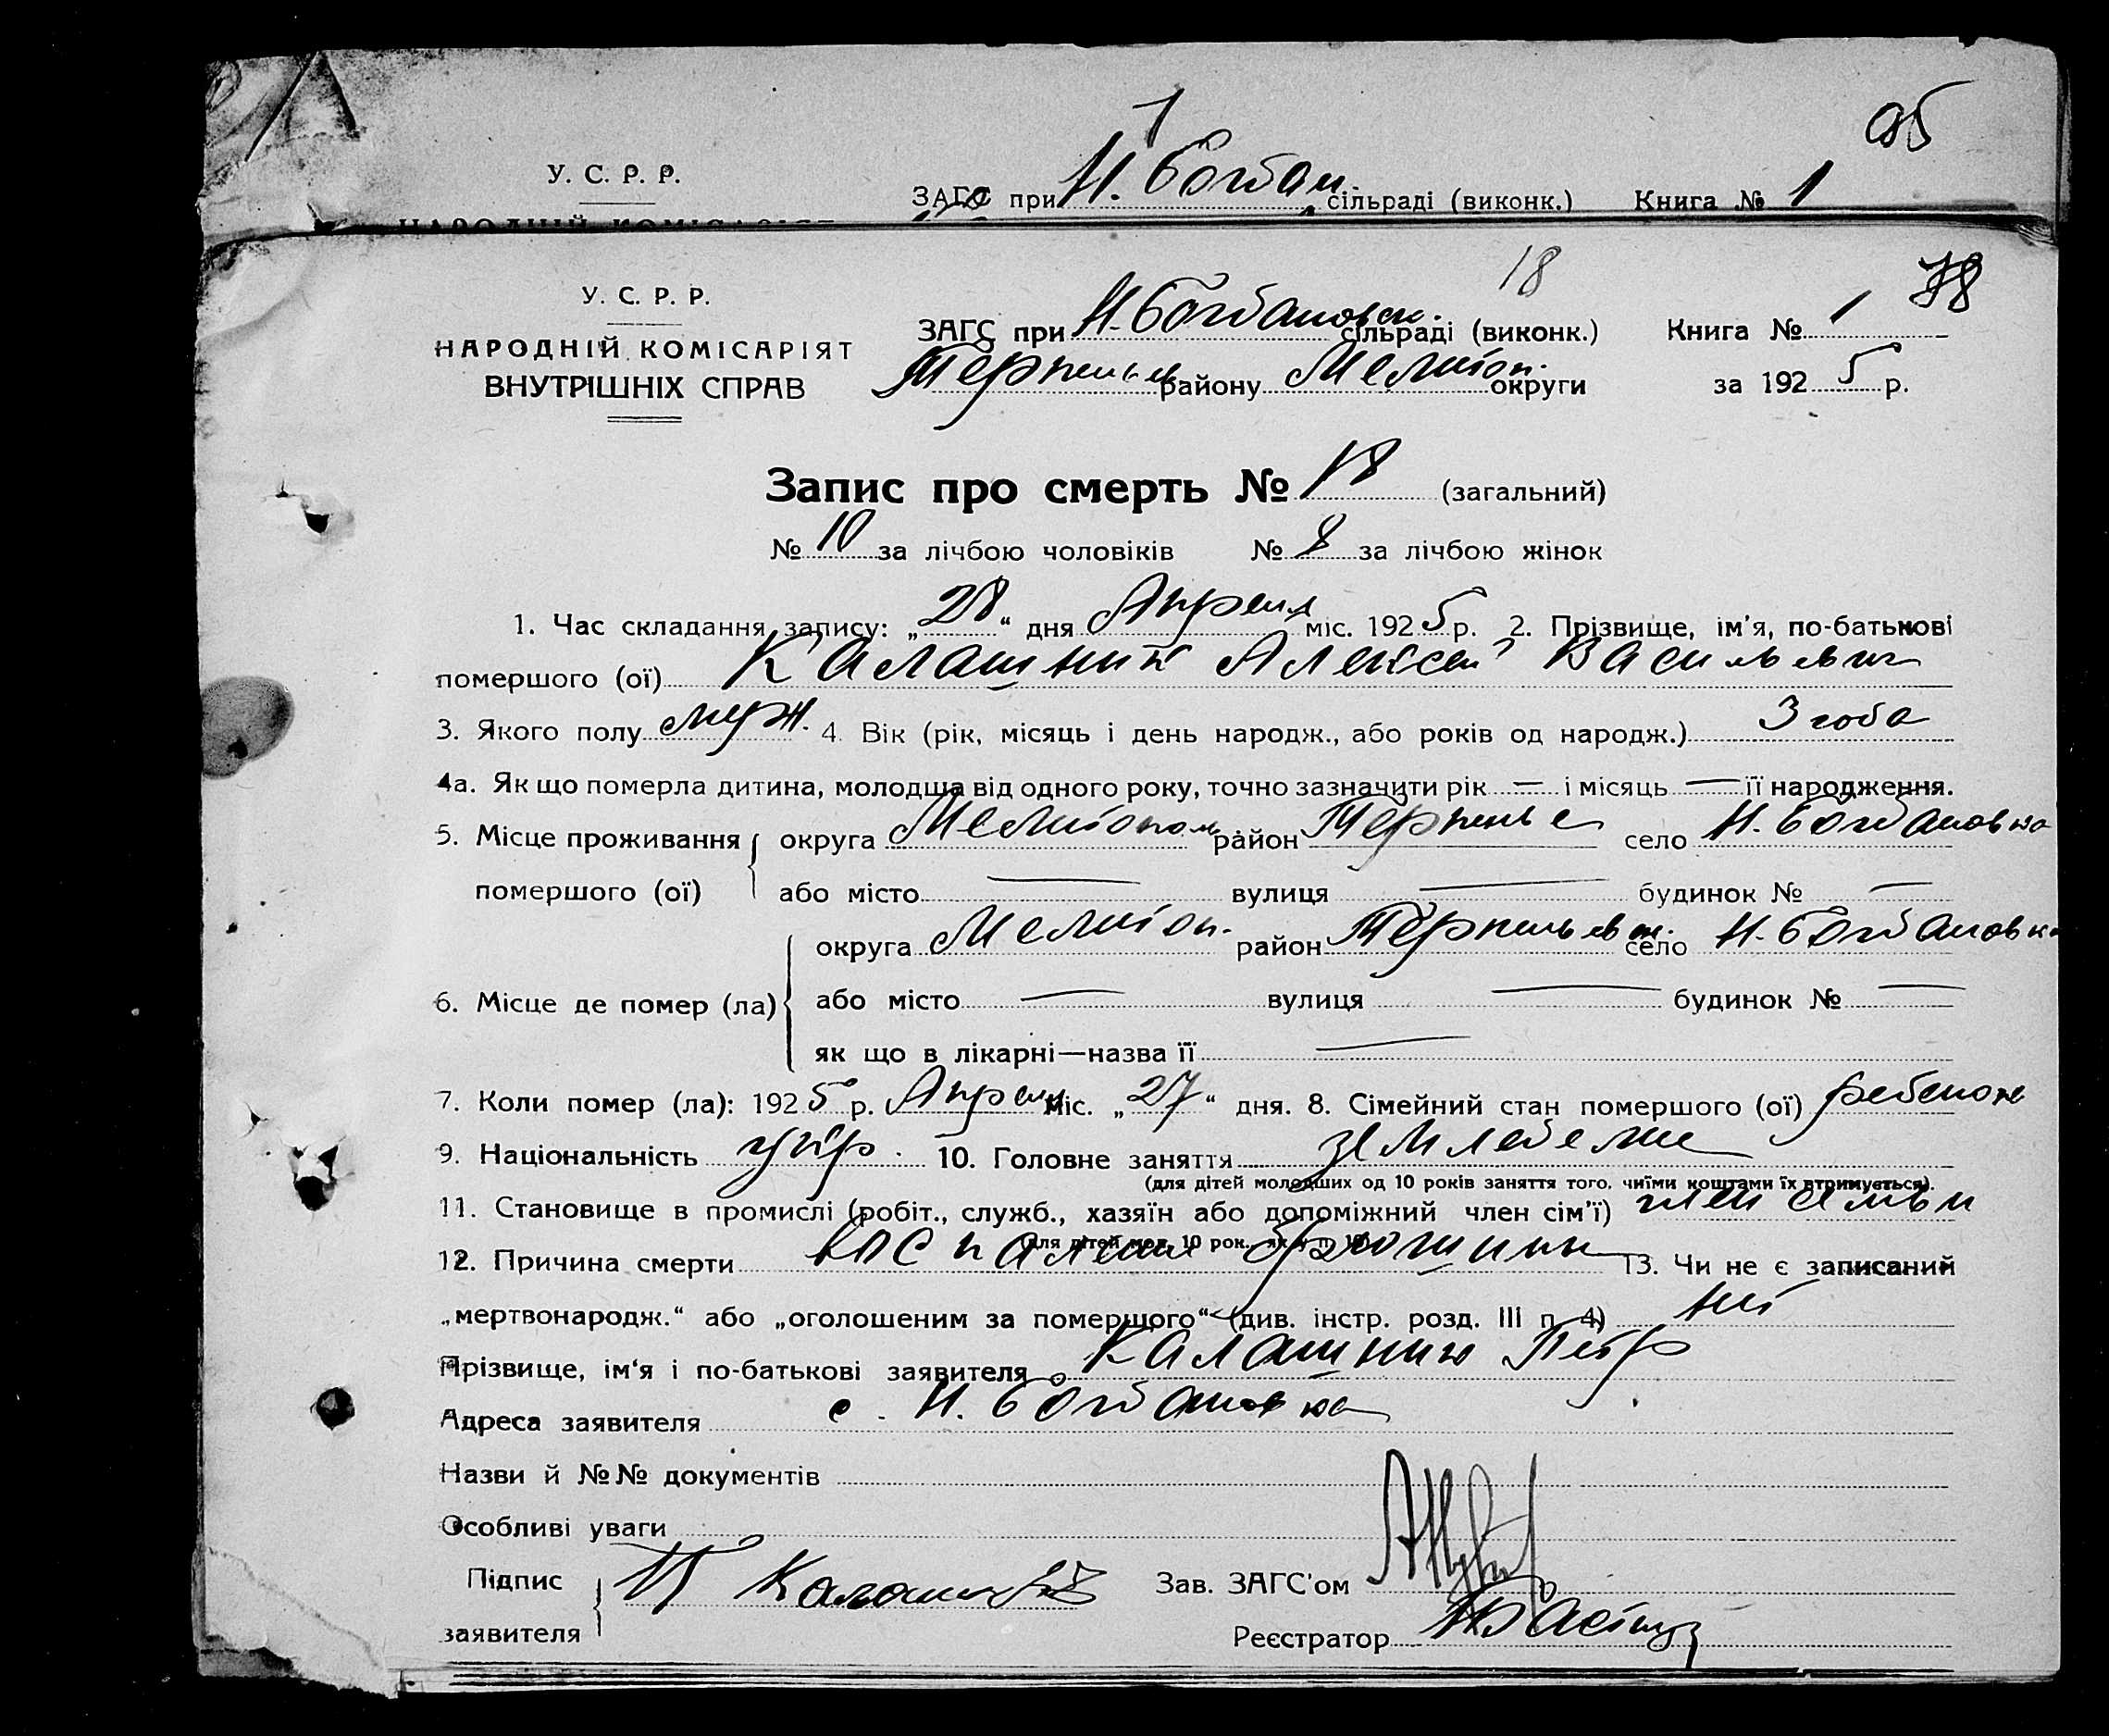 об
1
У. С. Р. Р.
ЗАГС при Н. Богдан. сільраді (виконк.) Книга № 1
18
78
У. С. Р. Р.
НАРОДНІЙ КОМІСАРІЯТ
ВНУТРІШНІХ СПРАВ
ЗАГС при Н. Богдановск. сільраді (виконк.) Книга № 1
Терпеньев району Мелитоп. округи за 1925 р.
Запис про смерть № 18 (загальний)
№ 10 за лічбою чоловіків № 8 за лічбою жінок
1. Час складання запису: „28“ дня Апреля міс. 1925 р. 2. Прізвище, ім'я, по-батькові
помершого (ої) Калашник Алексей Васильевич
3. Якого полу муж. 4. Вік (рік, місяць і день народж., або років од народж.) 3 года
4а. Як що померла дитина, молодша від одного року, точно зазначити рік — і місяць — її народження.
5. Місце проживання помершого (ої) округа Мелитополь. район Терпенье село Н. Богдановка
або місто — вулиця — будинок № —
6. Місце де помер (ла) округа Мелитоп. район Терпеньевск. село Н. Богдановка
або місто — вулиця — будинок № —
як що в лікарні—назва її —
7. Коли помер (ла): 1925 р. Апреля міс. „27“ дня. 8. Сімейний стан помершого (ої) ребенок
9. Національність укр. 10. Головне заняття земледелие
(для дітей молодших од 10 років заняття того, чиїми коштами їх втримується).
11. Становище в промислі (робіт., служб., хазяїн або допоміжний член сім'ї) член семьи
(для дітей мол. 10 рок., як у п. 10)
12. Причина смерти воспаление брюшины 13. Чи не є записаний
„мертвонародж.“ або „оголошеним за помершого“ (див. інстр. розд. III п. 4) нет
Прізвище, ім'я і по-батькові заявителя Калашник Петр
Адреса заявителя с. Н. Богдановка
Назви й №№ документів
Особливі уваги
Підпис заявителя П Калашник
Зав. ЗАГС'ом
Реєстратор